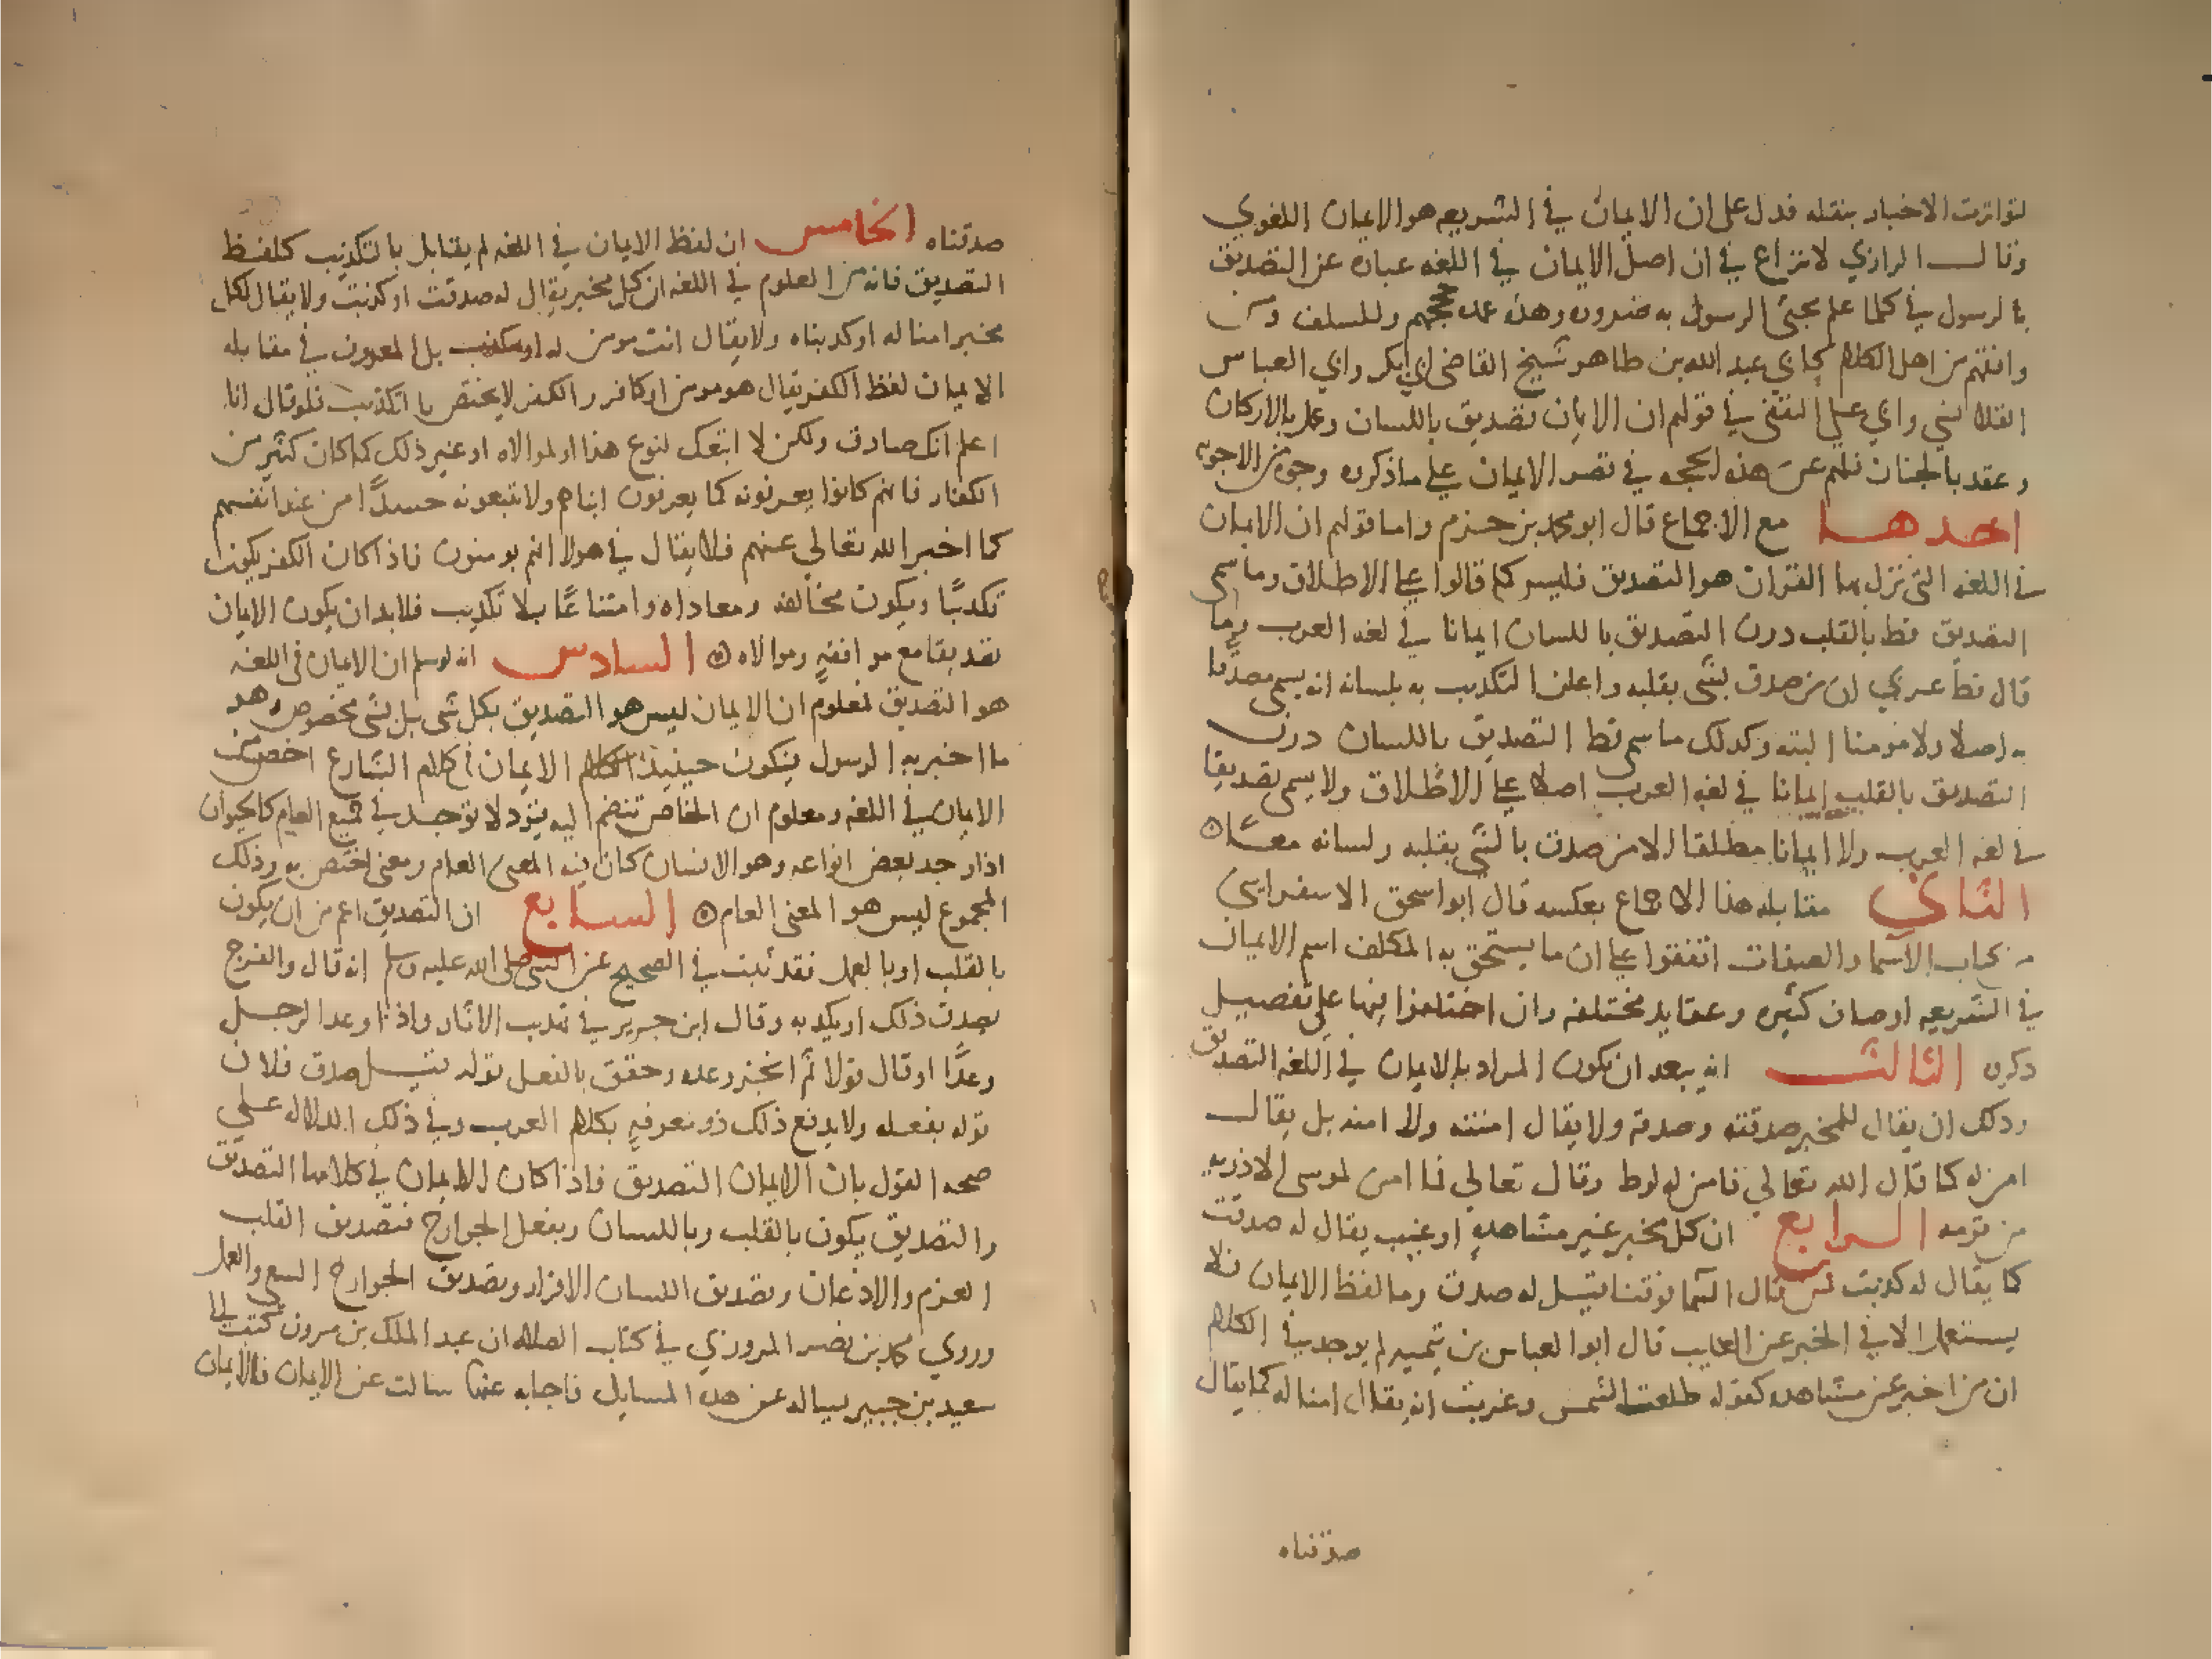 لتواترت الاخبار بنقله فدل على ان الايمان في الشريعه هو الايمان اللغوي
وقال الرازي لا نزاع في ان اصل الايمان في اللغه عباره عن التصديق
بالرسول في كلما علم مجئ الرسول به وهذه عمده حججهم وللسلف ومن
وافقهم من اهل الكلام كابي عبد الله بن طاهر شيخ القاضي ابي بكر وابي العباس
القلانسي وابي علي الثقفي في قولهم ان الايمان تصديق باللسان وعمل بالاركان
وعقد بالجنان فلهم عن هذه الحجه في قصر الايمان علي ما ذكروه وجوه من الاجوبه
احدها مع الاجماع قال ابو محمد بن حزم واما قولهم ان الايمان
في اللغه التي نزل بها القران هو التصديق فليس كما قالوا علي الاطلاق وما سمي
التصديق قط بالقلب دون التصديق باللسان ايمانا في لغه العرب وما
قال قط عربي ان من صدق بشي بقلبه واعلن التكذيب به بلسانه انه يسمي مصدقا
به اصلا ولا مومنا البته وكذلك ما سمي قط التصديق باللسان دون
التصديق بالقلب ايمانا في لغه العرب اصلا علي الاطلاق ولا يسمي تصديقا
في لغه العرب ولا ايمانا مطلقا الا من صدق بالشي بقلبه ولسانه معا
الثاني مقابله هذا الاجماع بعكسه قال ابو اسحق الاسفرايني
في كتاب الاسما والصفات اتفقوا علي ان ما يستحق به المكلف اسم الايمان
في الشريعه اوصاف كثيره وعقايد مختلفه وان اختلفوا فيها علي تفصيل
ذكروه الثالث انه يبعد ان يكون المراد بالايمان في اللغه التصديق
وذلك ان يقال للمخبر صدقته وصدق ولا يقال امنته ولا امن به بل يقال
امن له كما قال الله تعالي فامن له لوط وقال تعالي فما امن لموسى الا ذريه
من قومه الرابع ان كل مخبر عن مشاهده او غيب يقال له صدقت
كما يقال له كذبت فمن قال السما فوقنا قيل له صدق وما لفظ الايمان فلا
يستعمل الا في الخبر عن الغايب قال ابو العباس بن تيميه لم يوجد في الكلام
ان من اخبر عن مشاهده كقوله طلعت الشمس وغربت انه يقال امنا له كما يقال
صدقناه
صدقناه الخامس ان لفظ الايمان في اللغه لم يقابل بالتكذيب كلفظ
التصديق فانه من المعلوم في اللغه ان كل مخبر يقال له صدقت او كذبت ولا يقال لكل
مخبر امنا له او كذبناه ولا يقال انت مومن له او مكذب بل المعروف في مقابله
الايمان لفظ الكفر يقال هو مومن او كافر والكفر لا يختص بالتكذيب فلو قال انا
اعلم انك صادق ولكن لا اتبعك لنوع هذا او لموالاه او غير ذلك كما كان كثير من
الكفار فانهم كانوا يعرفونه كما يعرفون ابناهم ولا يتبعونه حسدًا من عند انفسهم
كما اخبر الله تعالي عنهم فلا يقال في هولا انهم يومنون فاذا كان الكفر يكون
تكذيبًا ويكون مخالفه ومعاداه وامتناعًا بلا تكذيب فلابد ان يكون الايمان
تصديقا مع موافقه وموالاه السادس انه لو سلم ان الايمان في اللغه
هو التصديق لمعلوم ان الايمان ليس هو التصديق بكل شي بل بشي مخصوص وهو
ما اخبر به الرسول فيكون حينيذ الايمان في كلام الشارع اخص من
الايمان في اللغه ومعلوم ان الخاص تنضم اليه قيود لا توجد في جميع العام كالحيوان
اذا وجد بعض انواعه وهو الانسان كان فيه المعنى العام ومعنى اختص به وذلك
المجموع ليس هو المعنى العام السابع ان التصديق اعم من ان يكون
بالقلب او بالعمل فقد ثبت في الصحيح عن النبي صلى الله عليه وسلم انه قال والفرج
يصدق ذلك او يكذبه وقال ابن جرير في تهذيب الاثار واذا وعد الرجل
وعدًا او قال قولا ثم انجز وعده وحقق بالفعل قوله قيل صدق فلان
قوله بفعله ولا يدفع ذلك ذو معرفه بكلام العرب وفي ذلك الدلاله علي
صحه القول بان الايمان التصديق فاذا كان الايمان في كلامها التصديق
والتصديق يكون بالقلب وباللسان وبفعل الجوارح فتصديق القلب
العزم والاذعان وتصديق اللسان الاقرار وتصديق الجوارح السعي والعمل
وروي محمد بن نصر المروزي في كتاب الصلاه ان عبد الملك بن مرون كتب الى
سعيد بن جبير يساله عن هذه المسايل فاجابه عنها سالت عن الايمان فالايمان